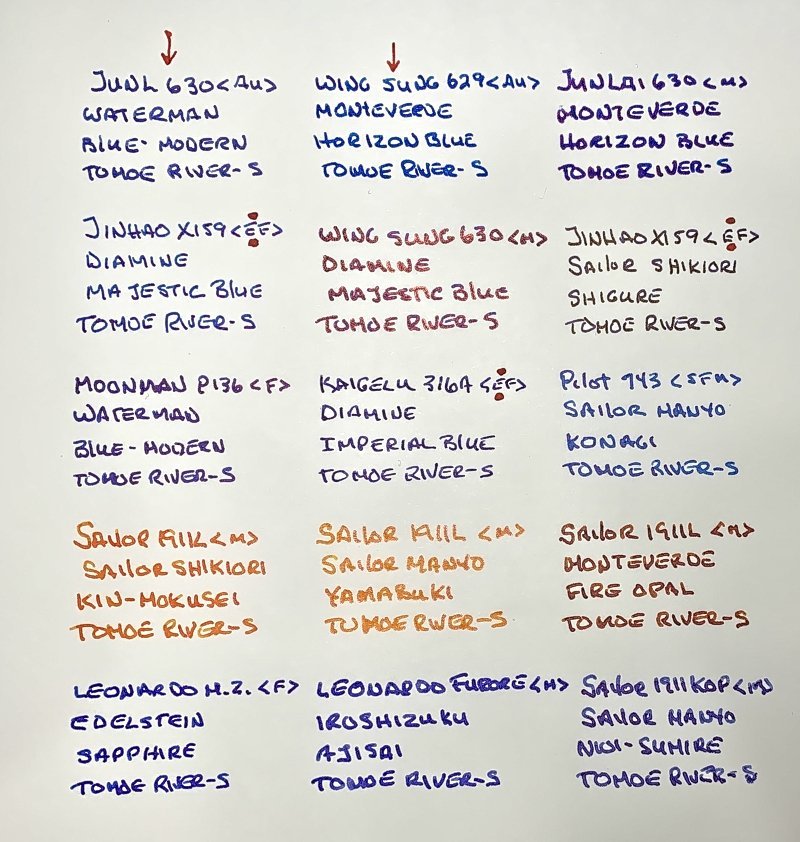 JUNL 630 <AU>
WATERMAN
BLUE-MODERN
TOMOE RIVER-S
WING SUNG 629 <AU>
MONTEVERDE
HORIZON BLUE
TOMOE RIVER-S
JUNLAI 630 <M>
MONTEVERDE
HORIZON BLUE
TOMOE RIVER-S
JINHAO X159 <EF>
DIAMINE
MAJESTIC BLUE
TOMOE RIVER-S
WING SUNG 630 <M>
DIAMINE
MAJESTIC BLUE
TOMOE RIVER-S
JINHAO X159 <EF>
SAILOR SHIKIORI
SHIGURE
TOMOE RIVER-S
MOONMAN P136 <F>
WATERMAN
BLUE-MODERN
TOMOE RIVER-S
KAIGELU 316A <EF>
DIAMINE
IMPERIAL BLUE
TOMOE RIVER-S
PILOT 743 <SFM>
SAILOR MANYO
KONAGI
TOMOE RIVER-S
SAILOR 1911L <M>
SAILOR SHIKIORI
KIN-MOKUSEI
TOMOE RIVER-S
SAILOR 1911L <M>
SAILOR MANYO
YAMABUKI
TOMOE RIVER-S
SAILOR 1911L <M>
MONTEVERDE
FIRE OPAL
TOMOE RIVER-S
LEONARDO M.Z. <F>
EDELSTEIN
SAPPHIRE
TOMOE RIVER-S
LEONARDO FURORE <M>
IROSHIZUKU
AJISAI
TOMOE RIVER-S
SAILOR 1911 KOP <M>
SAILOR MANYO
SUMIRE
TOMOE RIVER-S